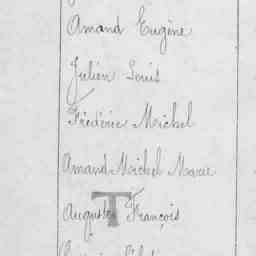 Amand Eugène
Julien Louis
Frédéric Michel
Amand Michel Marie
Auguste François